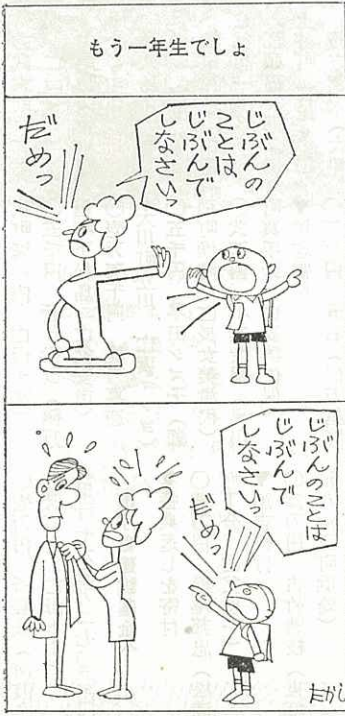 もう一年生でしょ
じぶんの
ことは
じぶんで
しなさいっ
だめっ
じぶんのことは
じぶんで
しなさいっ
だめっ
たかし